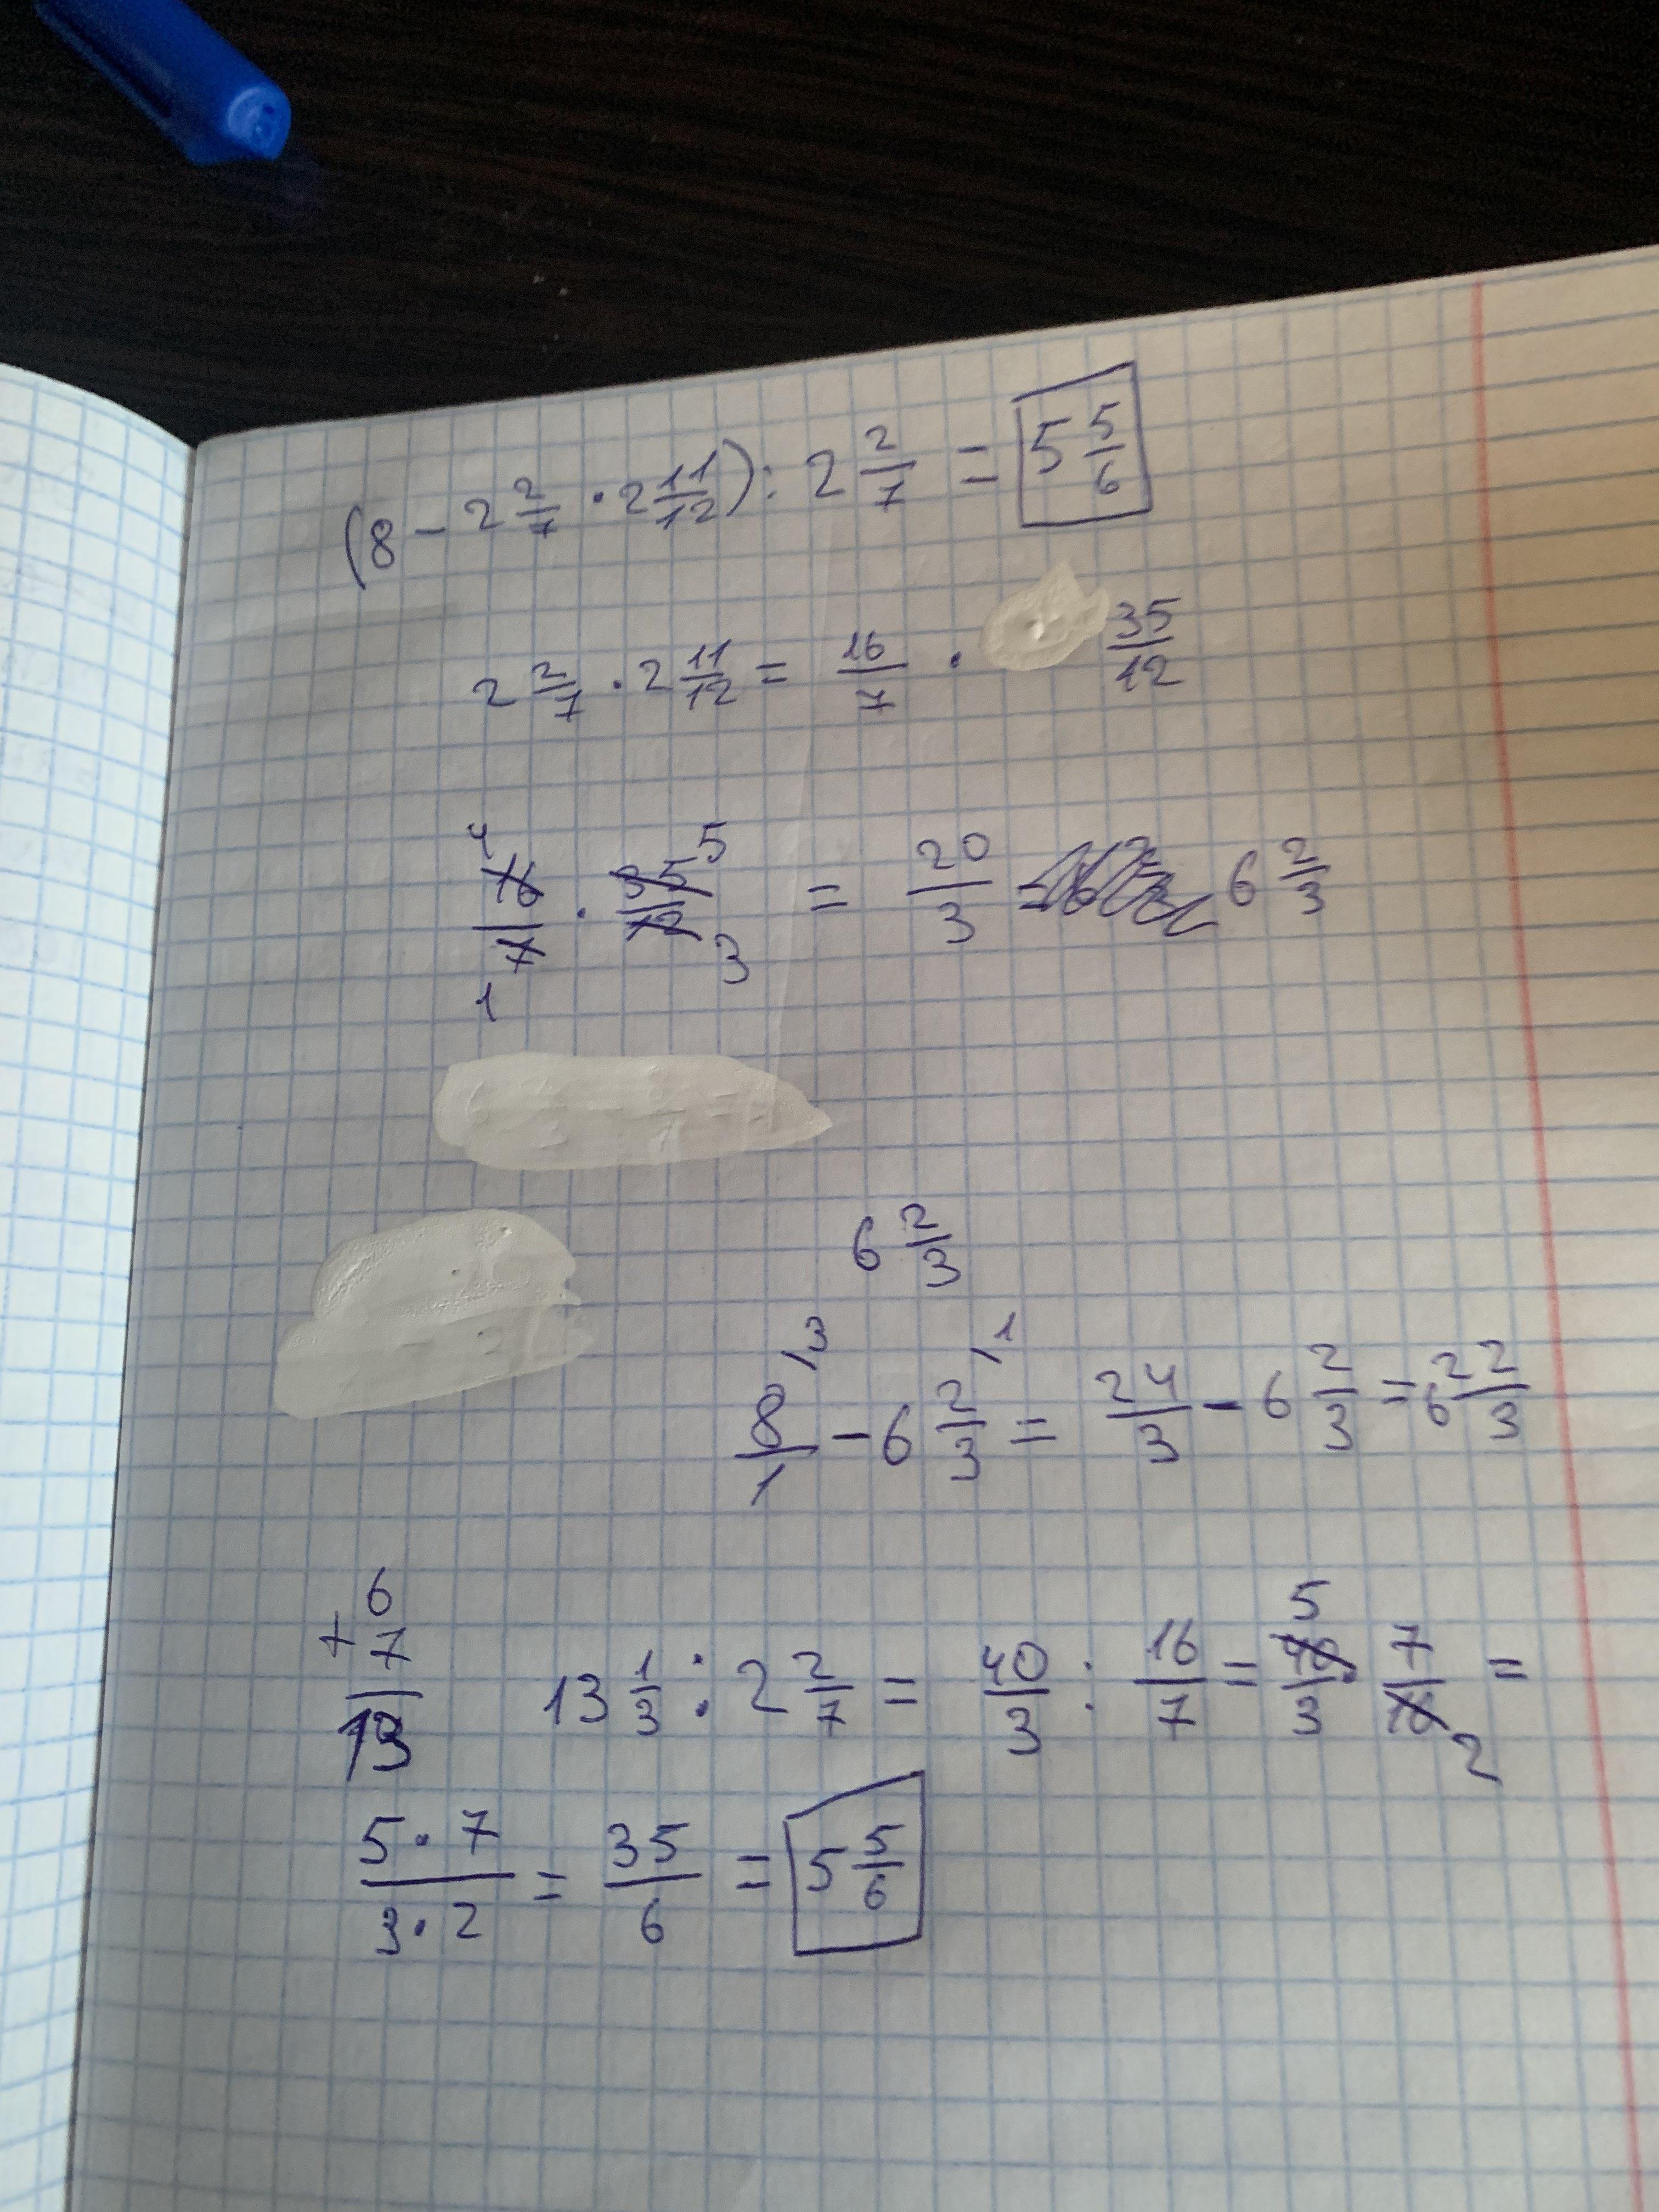 (8 - 2 2/7 · 2 11/12) : 2 2/7 = 5 5/6
2 2/7 · 2 11/12 = 16/7 · 35/12
4 5
16/7 · 35/12 = 20/3 6 2/3
1 3
6 2/3
8/1 \3 - 6 2/3 \1 = 24/3 - 6 2/3 = 6 22/3
6 + 7 = 13
13 1/3 : 2 2/7 = 40/3 : 16/7 = 40/3 · 7/16 =
5 2
5·7/3·2 = 35/6 = 5 5/6